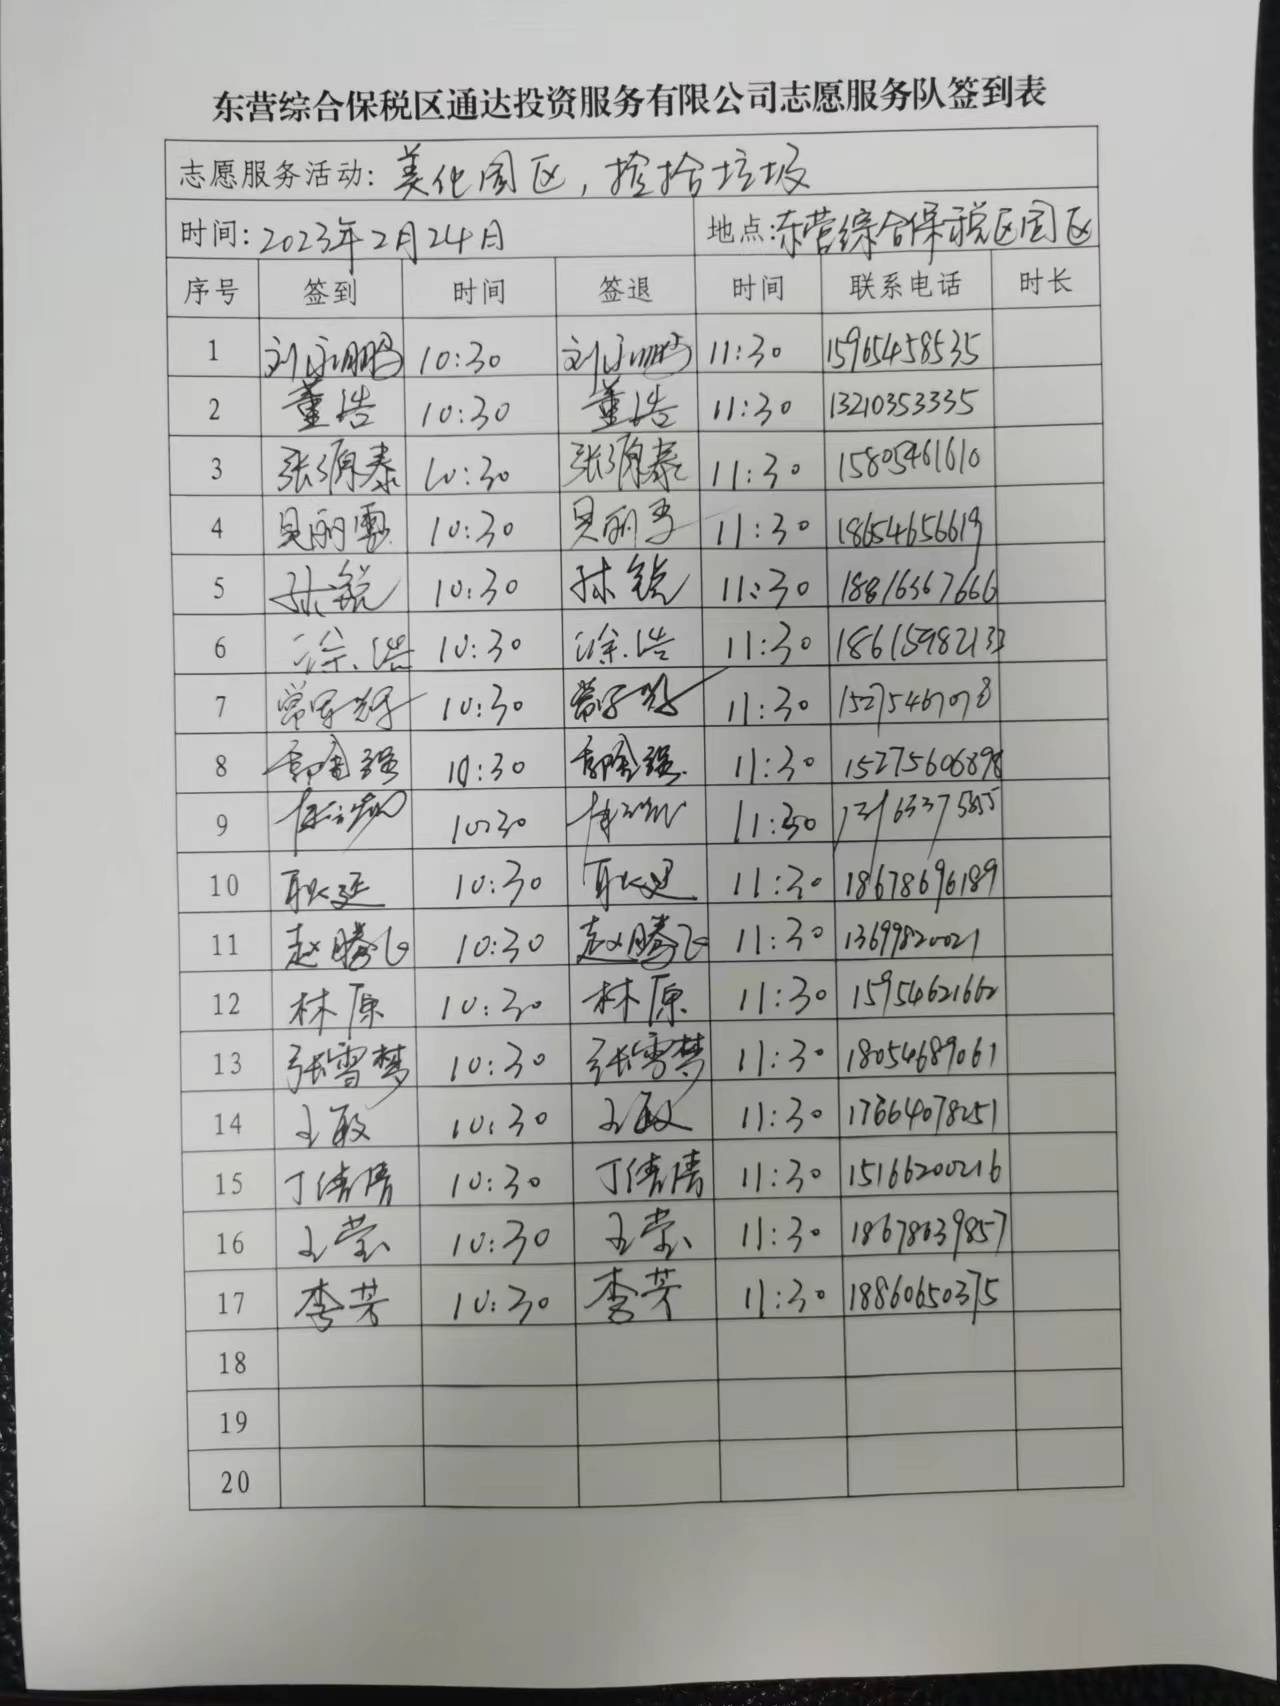 东营综合保税区通达投资服务有限公司志愿服务队签到表
志愿服务活动: 美化园区，捡拾垃圾
时间: 2023年2月24日 地点: 东营综合保税区园区
序号 签到 时间 签退 时间 联系电话 时长
1 刘永鹏 10:30 刘永鹏 11:30 15965458535
2 董浩 10:30 董浩 11:30 13210353335
3 张源泰 10:30 张源泰 11:30 15805461610
4 10:30 11:30 18654656619
5 孙锐 10:30 孙锐 11:30 18816367666
6 徐浩 10:30 徐浩 11:30 18615982133
7 10:30 11:30 15275467078
8 10:30 11:30 15275606898
9 10:30 11:30
10 耿廷 10:30 耿廷 11:30 18678696189
11 赵腾飞 10:30 赵腾飞 11:30 13699820021
12 林原 10:30 林原 11:30 15954621662
13 张雪梦 10:30 张雪梦 11:30 18054689061
14 王敏 10:30 王敏 11:30 17664078251
15 丁倩倩 10:30 丁倩倩 11:30 15166200216
16 王莹 10:30 王莹 11:30 18678639857
17 李芳 10:30 李芳 11:30 18860650375
18
19
20